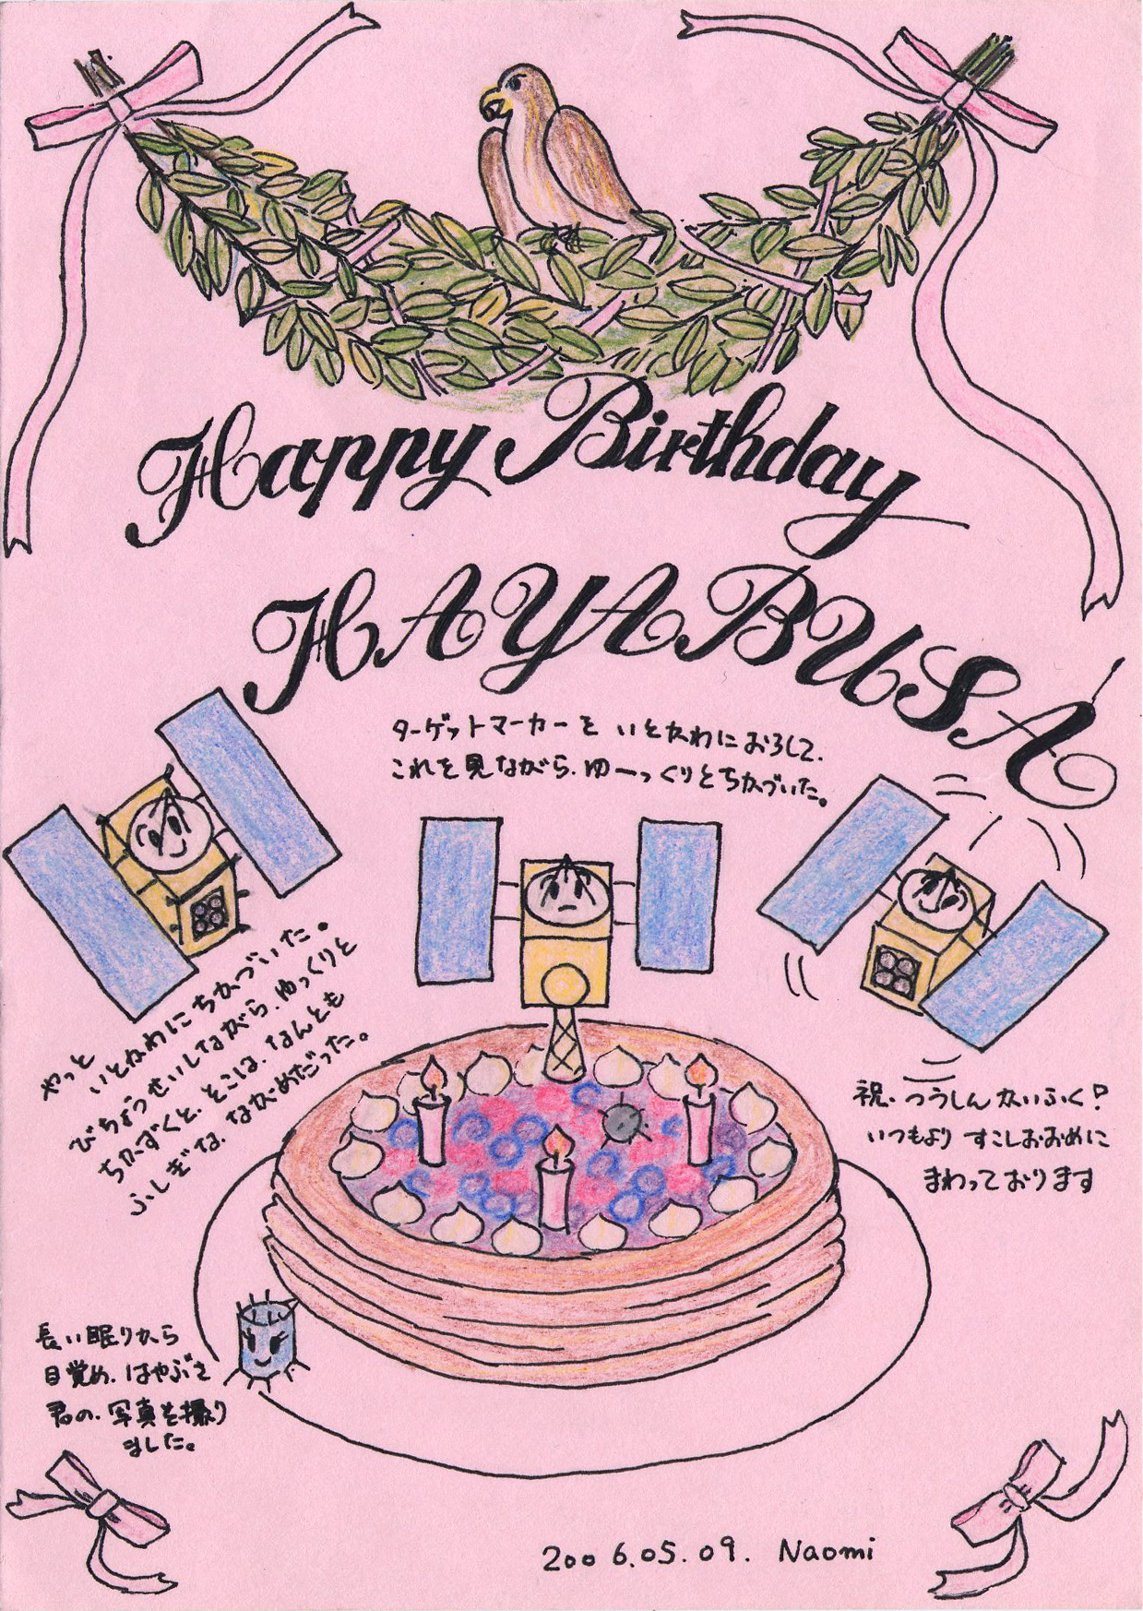 Happy Birthday
HAYABUSA
ターゲットマーカーを いとかわにおろして.
これを見ながら.ゆーっくりとちかづいた。
やっと
いとかわにちかづいた。
びちょうせいしながら.ゆっくりと
ちかずくと.そこは.なんとも
ふしぎな.ながめだった。
祝.つうしん かいふく!
いつもより すこしおおめに
まわっております
長い眠りから
目覚め.はやぶさ
君の.写真を撮り
ました。
2006.05.09. Naomi